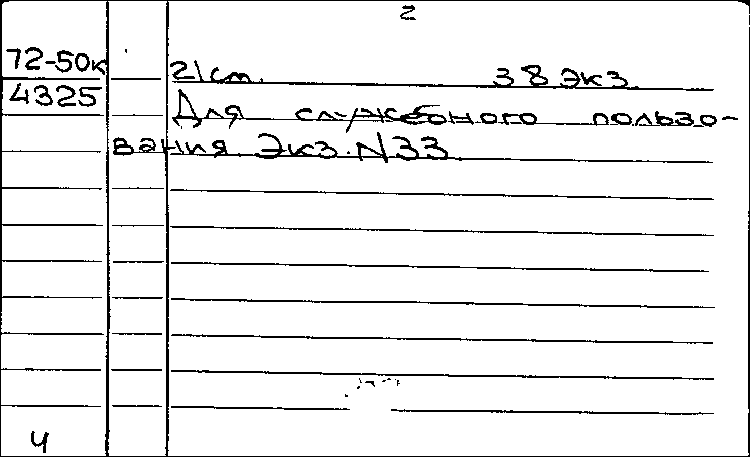 2
72-50к 21 см. 38 экз.
4325 Для служебного пользо-
вания Экз. N33
Ч